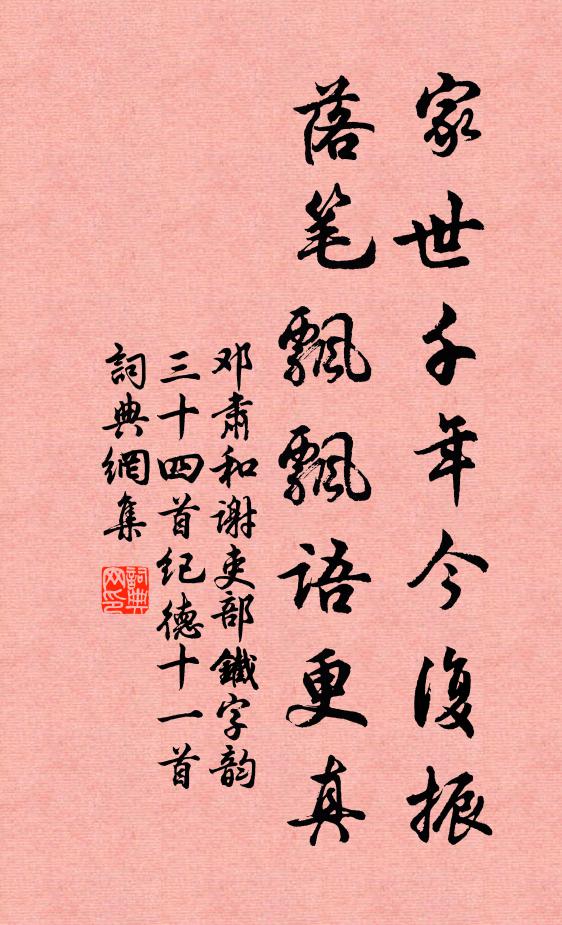 家世千年今復振
落笔飄飄語更真
邓肅和谢吏部鐵字韵
三十四首纪德十一首
詞典網集
詞典网印